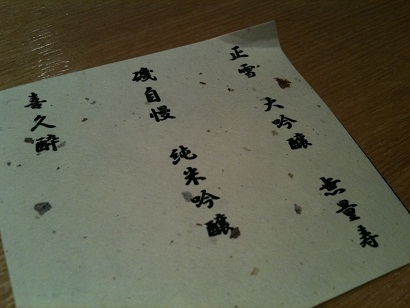 正雪 大吟醸 無量寿
磯自慢 純米吟醸
喜久醉